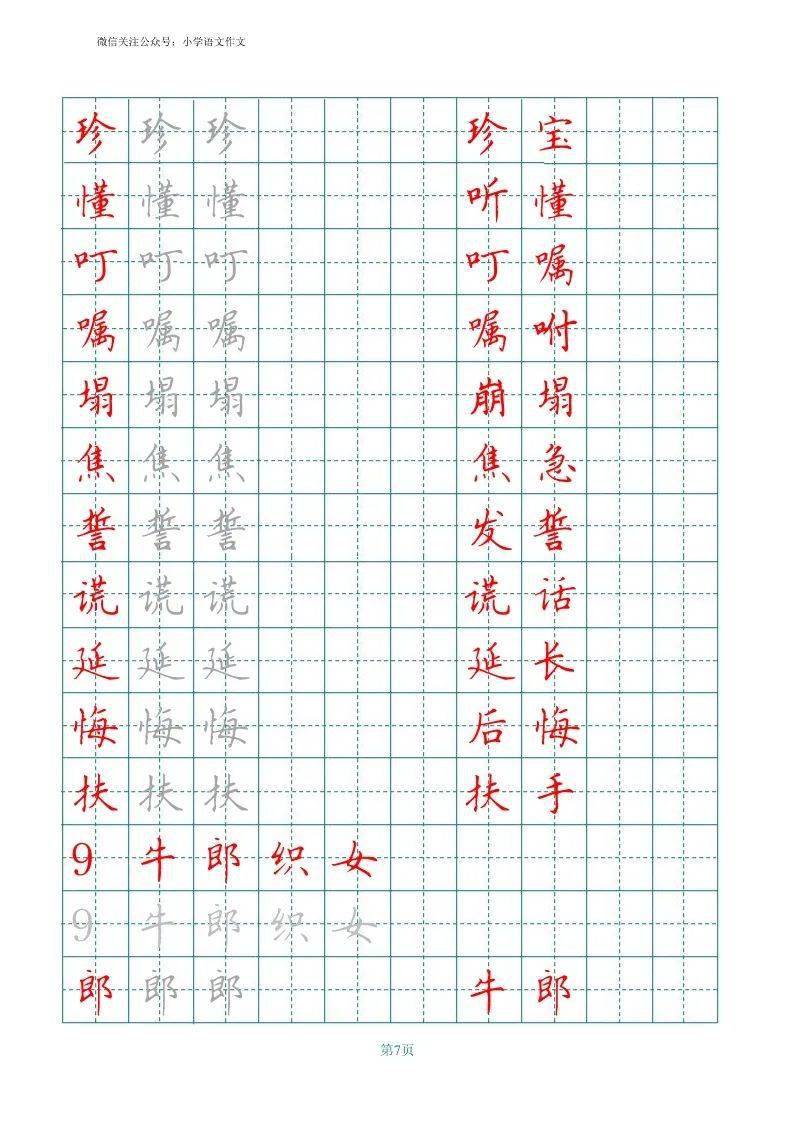 微信关注公众号：小学语文作文
珍 珍 珍 珍 宝
懂 懂 懂 听 懂
叮 叮 叮 叮 嘱
嘱 嘱 嘱 嘱 咐
塌 塌 塌 崩 塌
焦 焦 焦 焦 急
誓 誓 誓 发 誓
谎 谎 谎 谎 话
延 延 延 延 长
悔 悔 悔 后 悔
扶 扶 扶 扶 手
9 牛 郎 织 女
9 牛 郎 织 女
郎 郎 郎 牛 郎
第7页